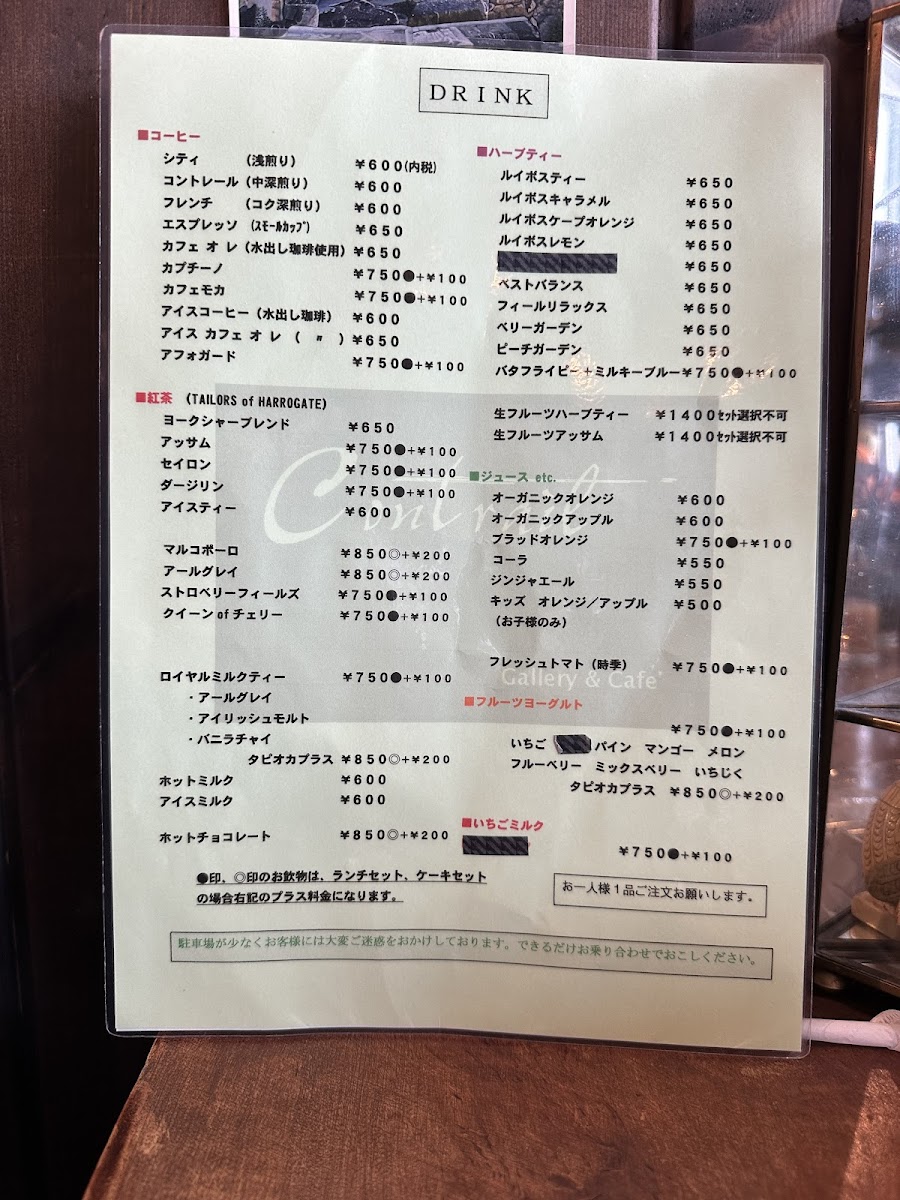 DRINK
■コーヒー
シティ （浅煎り） ￥600(内税)
コントレール（中深煎り） ￥600
フレンチ （コク深煎り） ￥600
エスプレッソ （ｽﾓｰﾙｶｯﾌﾟ） ￥650
カフェ オ レ（水出し珈琲使用）￥650
カプチーノ ￥750●+￥100
カフェモカ ￥750●+￥100
アイスコーヒー（水出し珈琲） ￥600
アイス カフェ オ レ （ 〃 ）￥650
アフォガード ￥750●+￥100
■紅茶 （TAILORS of HARROGATE）
ヨークシャーブレンド ￥650
アッサム ￥750●+￥100
セイロン ￥750●+￥100
ダージリン ￥750●+￥100
アイスティー ￥600
マルコポーロ ￥850◎+￥200
アールグレイ ￥850◎+￥200
ストロベリーフィールズ ￥750●+￥100
クイーン of チェリー ￥750●+￥100
ロイヤルミルクティー ￥750●+￥100
・アールグレイ
・アイリッシュモルト
・バニラチャイ
タピオカプラス ￥850◎+￥200
ホットミルク ￥600
アイスミルク ￥600
ホットチョコレート ￥850◎+￥200
■ハーブティー
ルイボスティー ￥650
ルイボスキャラメル ￥650
ルイボスケープオレンジ ￥650
ルイボスレモン ￥650
￥650
ベストバランス ￥650
フィールリラックス ￥650
ベリーガーデン ￥650
ピーチガーデン ￥650
バタフライピー＋ミルキーブルー￥750●+￥100
生フルーツハーブティー ￥1400ｾｯﾄ選択不可
生フルーツアッサム ￥1400ｾｯﾄ選択不可
■ジュース etc.
オーガニックオレンジ ￥600
オーガニックアップル ￥600
ブラッドオレンジ ￥750●+￥100
コーラ ￥550
ジンジャエール ￥550
キッズ オレンジ／アップル ￥500
（お子様のみ）
フレッシュトマト（時季） ￥750●+￥100
Contrail
Gallery & Cafe'
■フルーツヨーグルト
￥750●+￥100
いちご パイン マンゴー メロン
ブルーベリー ミックスベリー いちじく
タピオカプラス ￥850◎+￥200
■いちごミルク
￥750●+￥100
●印、◎印のお飲物は、ランチセット、ケーキセット
の場合右記のプラス料金になります。
お一人様１品ご注文お願いします。
駐車場が少なくお客様には大変ご迷惑をおかけしております。できるだけお乗り合わせでおこしください。